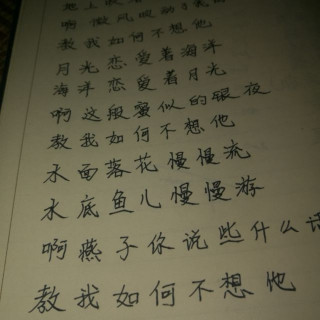 地上
啊 微风吹
教我如何不想他
月光恋爱着海洋
海洋恋爱着月光
啊 这般蜜似的银夜
教我如何不想他
水面落花慢慢流
水底鱼儿慢慢游
啊 燕子你说些什么话
教我如何不想他